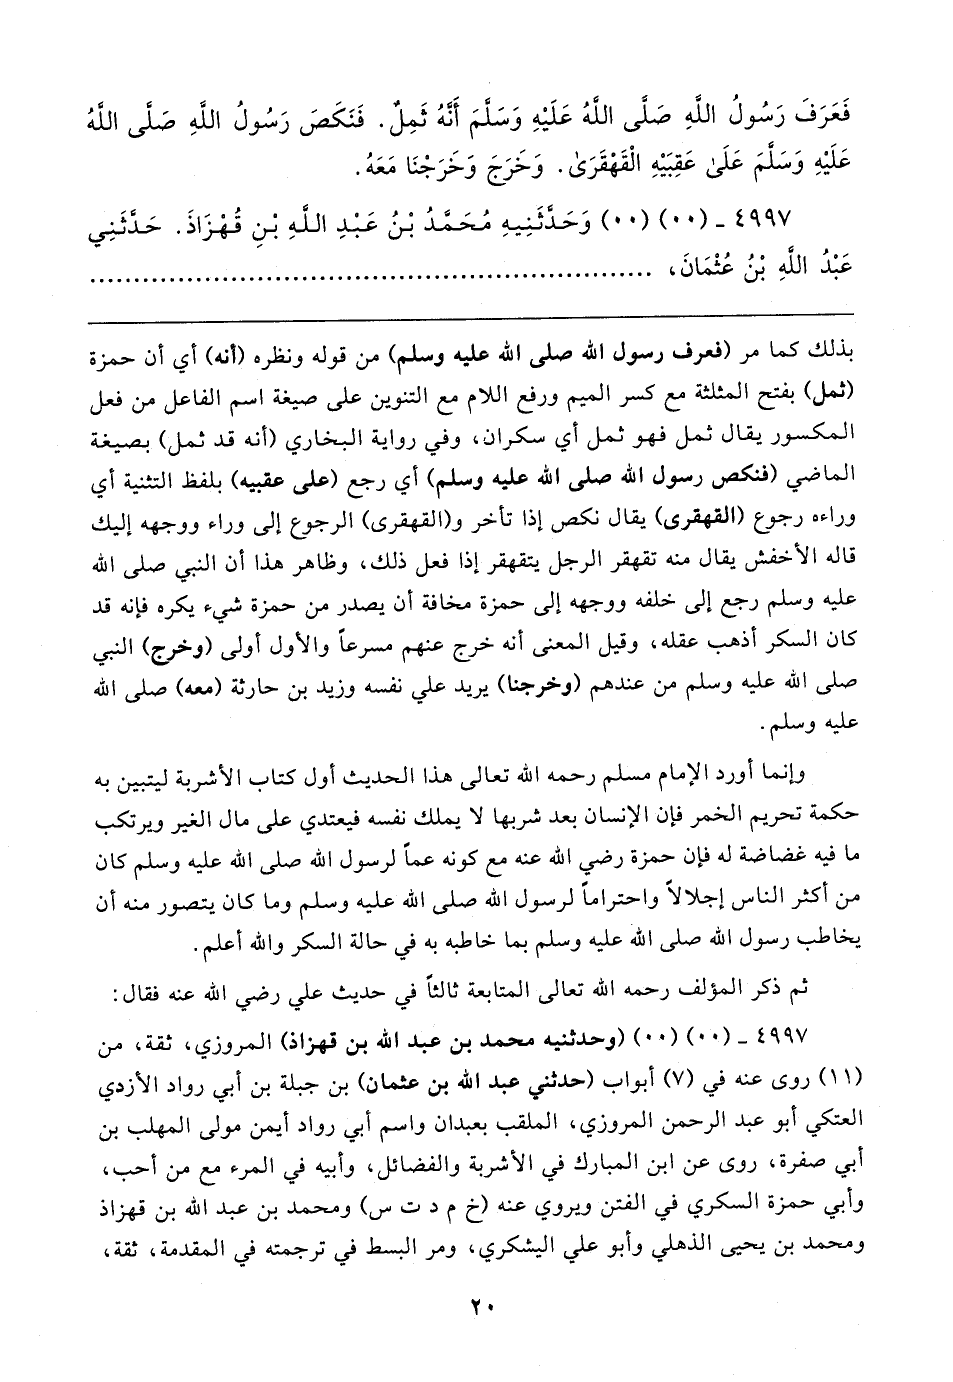 فَعَرَفَ رَسُولُ اللَّهِ صَلَّى اللَّهُ عَلَيْهِ وَسَلَّمَ أَنَّهُ ثَمِلٌ. فَنَكَصَ رَسُولُ اللَّهِ صَلَّى اللَّهُ
عَلَيْهِ وَسَلَّمَ عَلَىٰ عَقِبَيْهِ الْقَهْقَرَىٰ. وَخَرَجَ وَخَرَجْنَا مَعَهُ.
٤٩٩٧ ـ (٠٠) (٠٠) وَحَدَّثَنِيهِ مُحَمَّدُ بْنُ عَبْدِ اللَّهِ بْنِ قُهْزَاذَ. حَدَّثَنِي
عَبْدُ اللَّهِ بْنُ عُثْمَانَ، ................................................................
بذلك كما مر (فعرف رسول الله صلى الله عليه وسلم) من قوله ونظره (أنه) أي أن حمزة
(ثمل) بفتح المثلثة مع كسر الميم ورفع اللام مع التنوين على صيغة اسم الفاعل من فعل
المكسور يقال ثمل فهو ثمل أي سكران، وفي رواية البخاري (أنه قد ثمل) بصيغة
الماضي (فنكص رسول الله صلى الله عليه وسلم) أي رجع (على عقبيه) بلفظ التثنية أي
وراءه رجوع (القهقرى) يقال نكص إذا تأخر و(القهقرى) الرجوع إلى وراء ووجهه إليك
قاله الأخفش يقال منه تقهقر الرجل يتقهقر إذا فعل ذلك، وظاهر هذا أن النبي صلى الله
عليه وسلم رجع إلى خلفه ووجهه إلى حمزة مخافة أن يصدر من حمزة شيء يكره فإنه قد
كان السكر أذهب عقله، وقيل المعنى أنه خرج عنهم مسرعاً والأول أولى (وخرج) النبي
صلى الله عليه وسلم من عندهم (وخرجنا) يريد علي نفسه وزيد بن حارثة (معه) صلى الله
عليه وسلم.
وإنما أورد الإمام مسلم رحمه الله تعالى هذا الحديث أول كتاب الأشربة ليتبين به
حكمة تحريم الخمر فإن الإنسان بعد شربها لا يملك نفسه فيعتدي على مال الغير ويرتكب
ما فيه غضاضة له فإن حمزة رضي الله عنه مع كونه عماً لرسول الله صلى الله عليه وسلم كان
من أكثر الناس إجلالاً واحتراماً لرسول الله صلى الله عليه وسلم وما كان يتصور منه أن
يخاطب رسول الله صلى الله عليه وسلم بما خاطبه به في حالة السكر والله أعلم.
ثم ذكر المؤلف رحمه الله تعالى المتابعة ثالثاً في حديث علي رضي الله عنه فقال:
٤٩٩٧ ـ (٠٠) (٠٠) (وحدثنيه محمد بن عبد الله بن قهزاذ) المروزي، ثقة، من
(١١) روى عنه في (٧) أبواب (حدثني عبد الله بن عثمان) بن جبلة بن أبي رواد الأزدي
العتكي أبو عبد الرحمن المروزي، الملقب بعبدان واسم أبي رواد أيمن مولى المهلب بن
أبي صفرة، روى عن ابن المبارك في الأشربة والفضائل، وأبيه في المرء مع من أحب،
وأبي حمزة السكري في الفتن ويروي عنه (خ م د ت س) ومحمد بن عبد الله بن قهزاذ
ومحمد بن يحيى الذهلي وأبو علي اليشكري، ومر البسط في ترجمته في المقدمة، ثقة،
٢٠